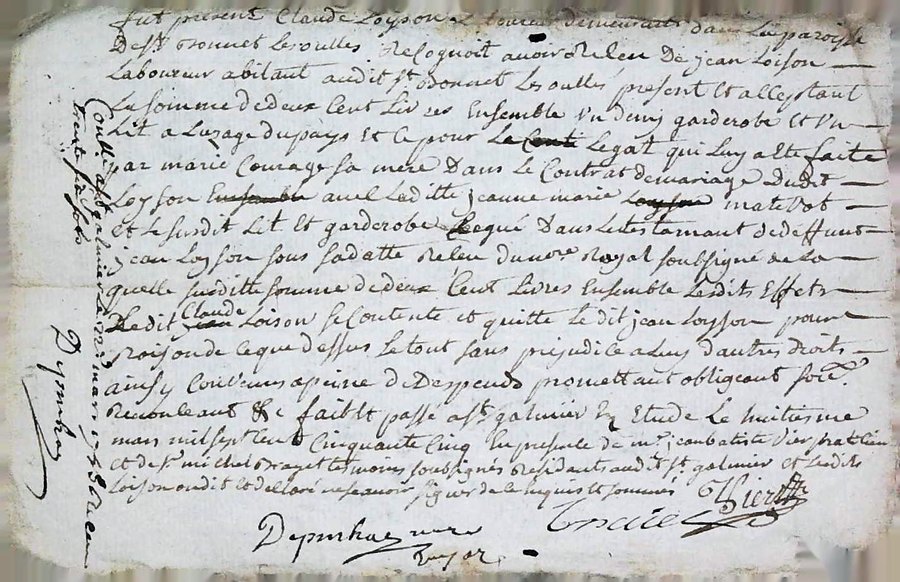 fut present Claude Loyson Laboureur demeurant dans La paroisse
De st Bonnet Les oulles Recognoit avoir Releu De jean Loison
Laboureur abitant audit st Bonnet Les oulles present Et acceptant
La somme de deux Cent Livres Ensemble Vn demy garderobe Et Vn
Lit a Luzage du pays Et Ce pour Legat qui Luy a Ete faite
par marie Courage sa mere Dans Le Contrat de mariage Dudit
Loyson avec Laditte jeanne marie matevot
Et Le susdit Lit Et garderobe Legué Dans Le testamant de deffunt
jean Loyson sous sa datte Releu du nore Royal soussigné de La
quelle susditte somme de deux Cent Livres Ensemble Lesdits Effets
Ledit Claude Loison se Contente et quitte Le dit jean Loyson pour
Raison de Ce que dessus Le tout sans prejudice a Luy d'autres Droits
ainsy Convenus a peine de Despends promettant obligeant
Renonceant &c fait Et passé a st galmier En Etude Le huitiesme
mars mil sept Cent Cinquante Cinq En presence de mr jean batiste Vier
et de sr michel tesmoins soussignés Residants audit st galmier et Lesdits
Loison ont dit et declaré ne scavoir signer de Ce Enquis Et sommés
Vier
nore
Royal
Conllé a st galmier Le 22 mars 1755 Releu
trente six sols